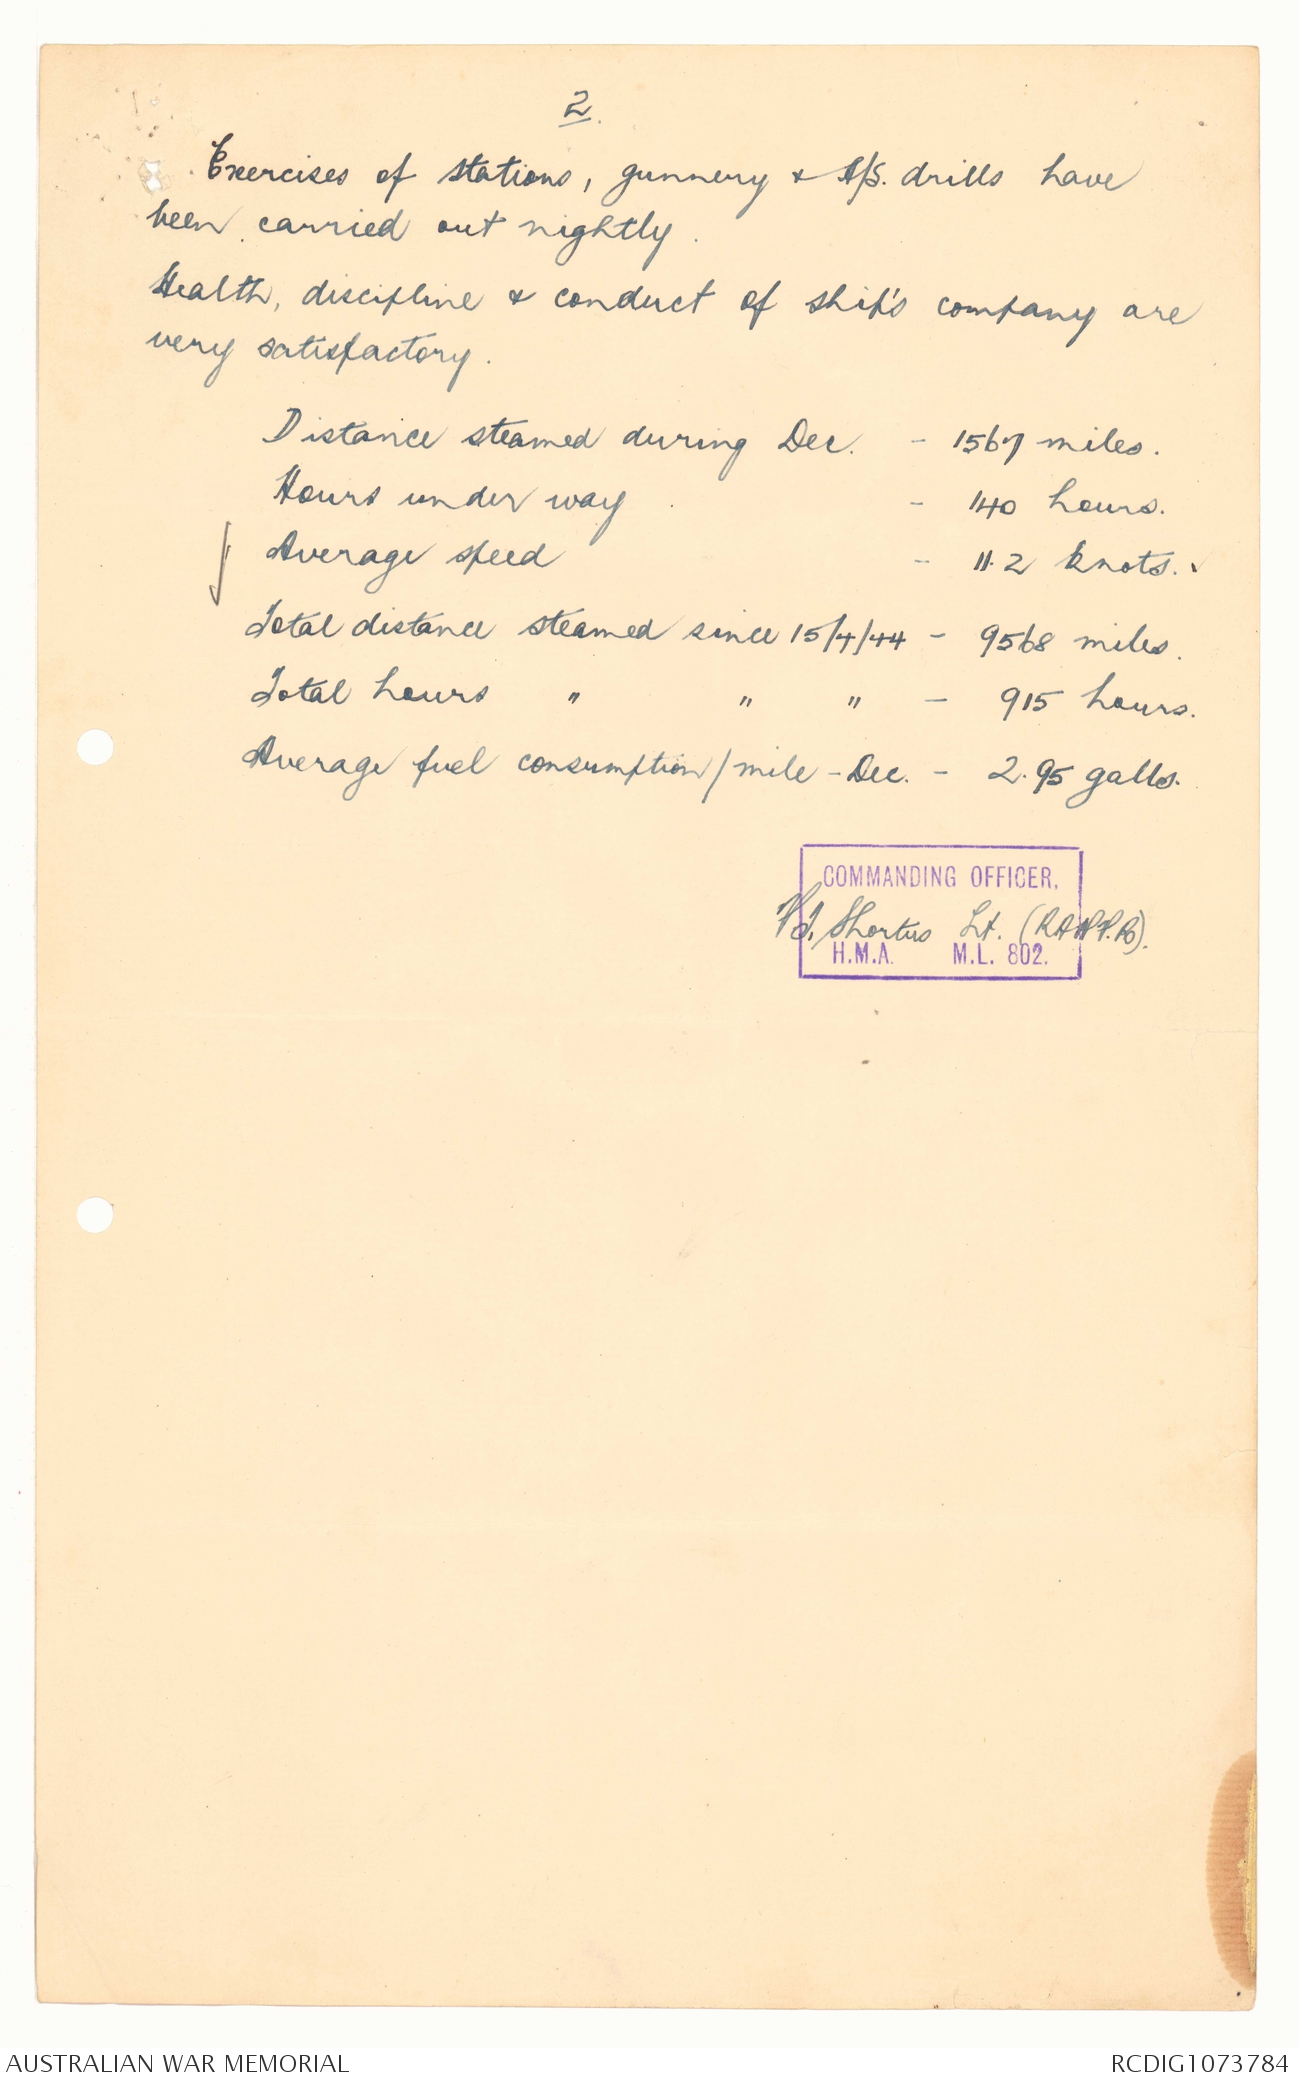 2.
Exercises of stations, gunnery & A/S. drills have
been carried out nightly.
Health, discipline & conduct of ship's company are
very satisfactory.
Distance steamed during Dec. - 1567 miles.
Hours under way - 140 hours.
Average speed - 11.2 knots.
Total distance steamed since 15/4/44 - 9568 miles.
Total hours " " " - 915 hours.
Average fuel consumption/mile - Dec. - 2.95 galls.
COMMANDING OFFICER.
Shortus Lt. (RANVR).
H.M.A. M.L. 802.
AUSTRALIAN WAR MEMORIAL RCDIG1073784